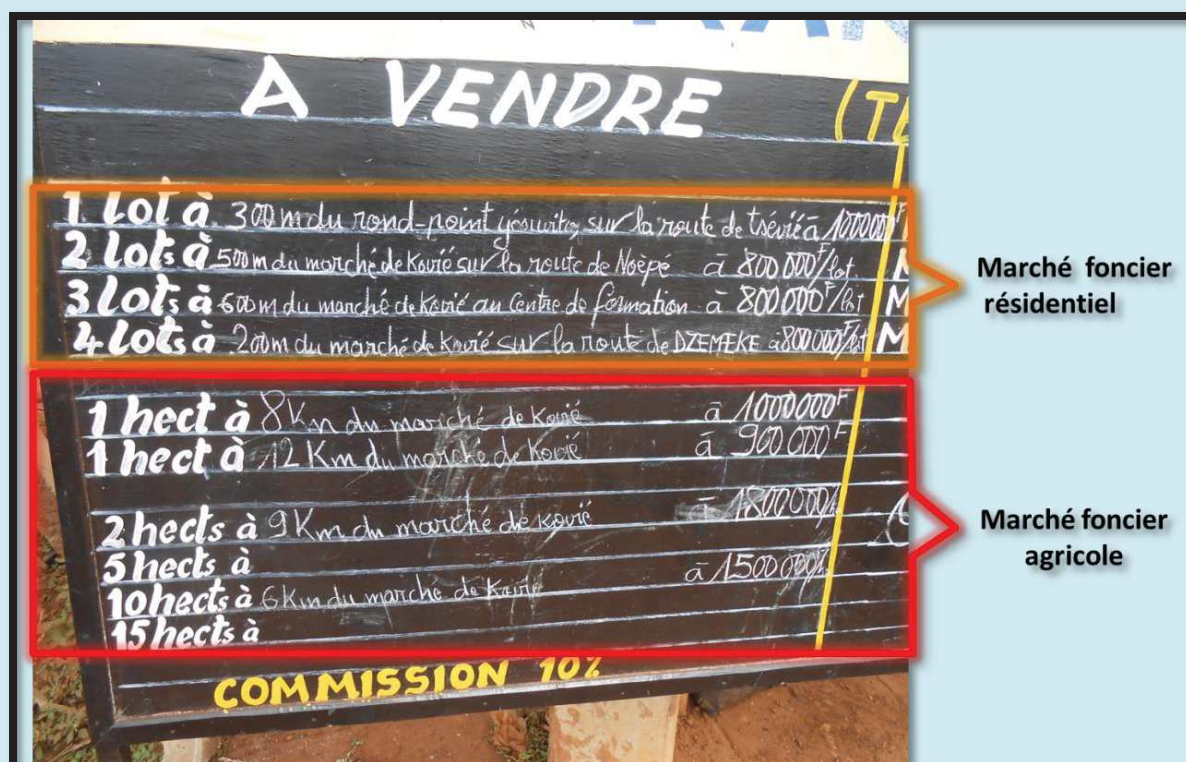 A VENDRE (T
1 lot à 300m du rond-point yésuvito, sur la route de tsévié à 1000000F
2 lots à 500m du marché de Kovié sur la route de Noépé à 800 000F/lot
3 lots à 600m du marché de kovié au Centre de formation à 800'000F/lot M
4 lots à 200m du marché de kovié sur la route de DZEMEKE à 800000F/lot M
Marché foncier résidentiel
1 hect à 8Km du marché de kovié à 1000000F
1 hect à 12 Km du marché de kovié à 900 000F
2 hects à 9Km du marché de kovié à 1800000/h
5 hects à
10 hects à 6Km du marché de Kovié à 1500 000/h
15 hects à
Marché foncier agricole
COMMISSION 10%